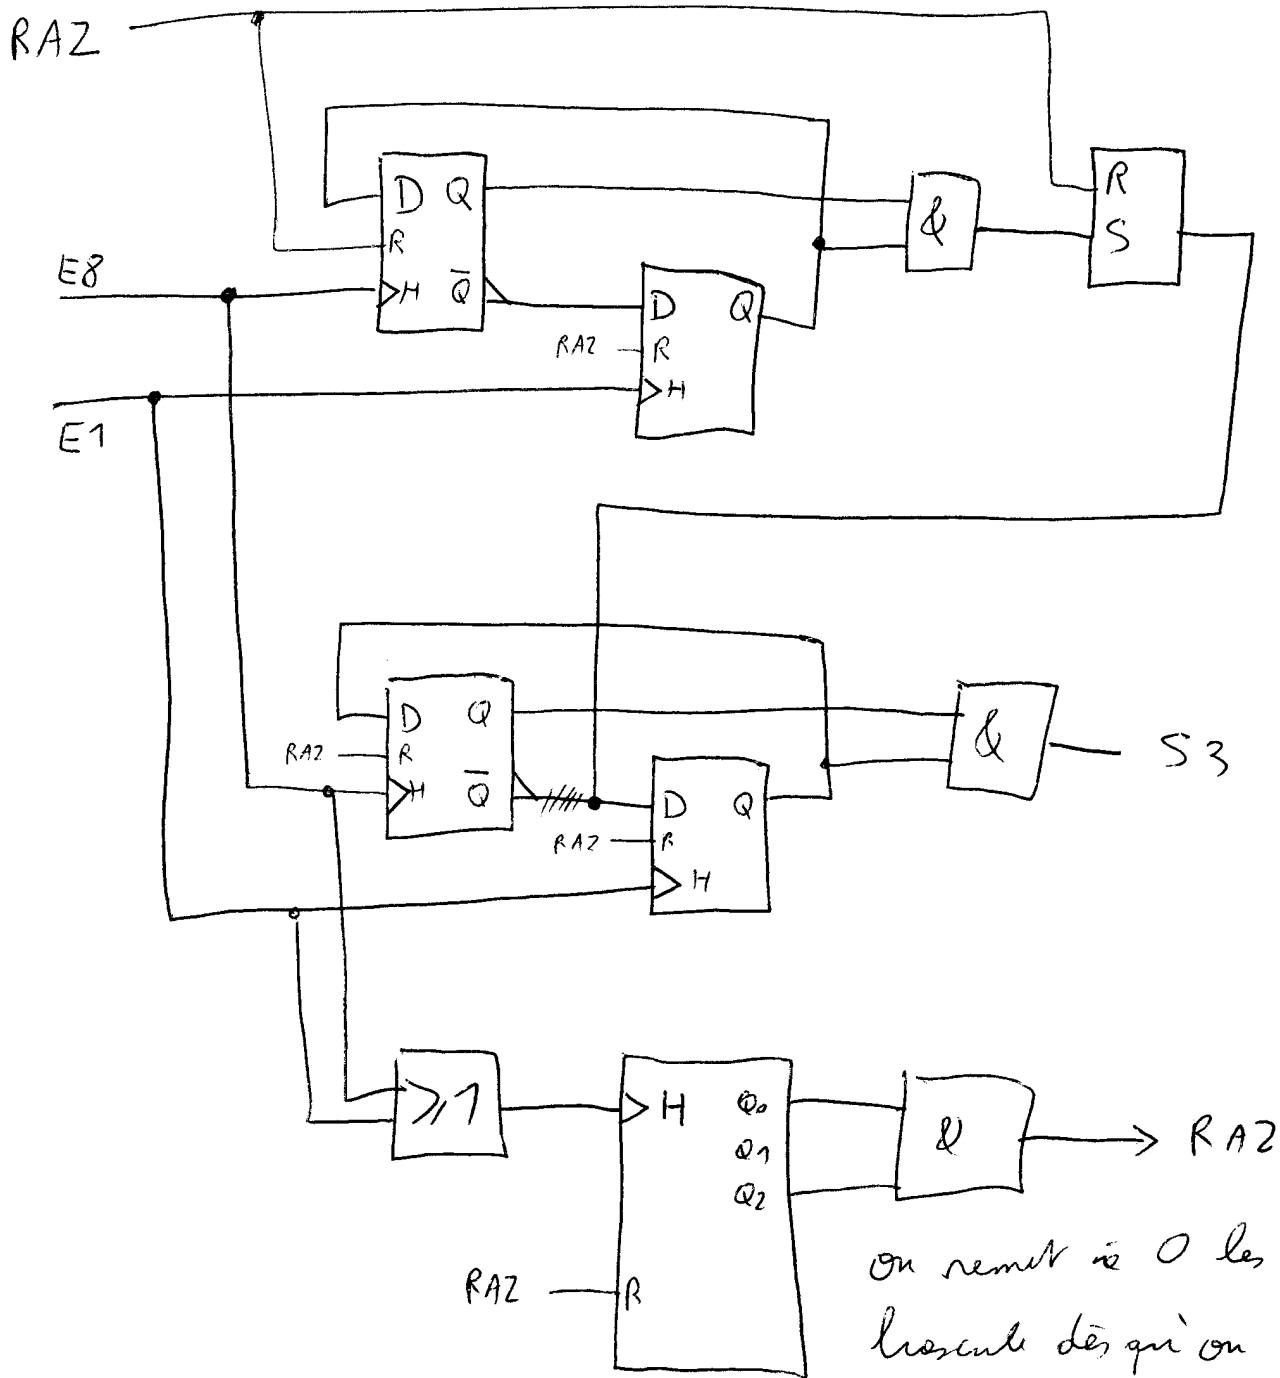 RAZ
D Q
R
H Q̅
&
R
S
E8
D Q
RAZ R
H
E1
D Q
RAZ R
H Q̅
&
S3
D Q
RAZ R
H
≥1
H Q0
Q1
Q2
&
RAZ
RAZ R
on remet à 0 les
bascule dès qu'on